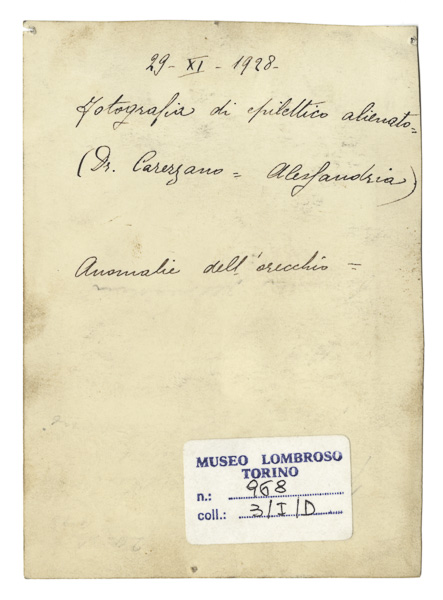 29 - XI - 1928 -
Fotografia di epilettico alienato =
(Dr. Carezzano = Alessandria)
Anomalie dell'orecchio =
MUSEO LOMBROSO
TORINO
n.: 968
coll.: 3/I/D